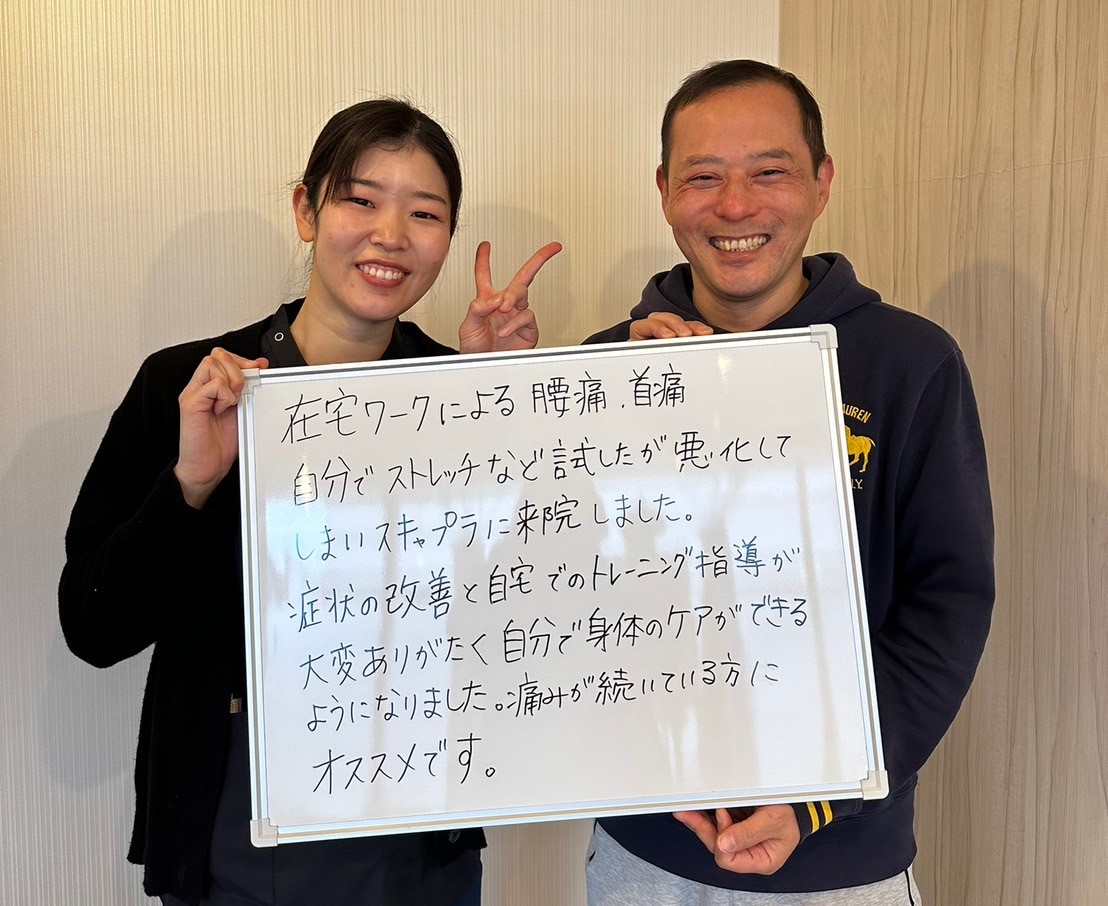 在宅ワークによる 腰痛、首痛
自分で ストレッチなど試したが 悪化して
しまいスキャプラに来院しました。
症状の改善と自宅でのトレーニング指導が
大変ありがたく 自分で身体のケアができる
ようになりました。痛みが続いている方に
オススメです。
AUREN
.Y.